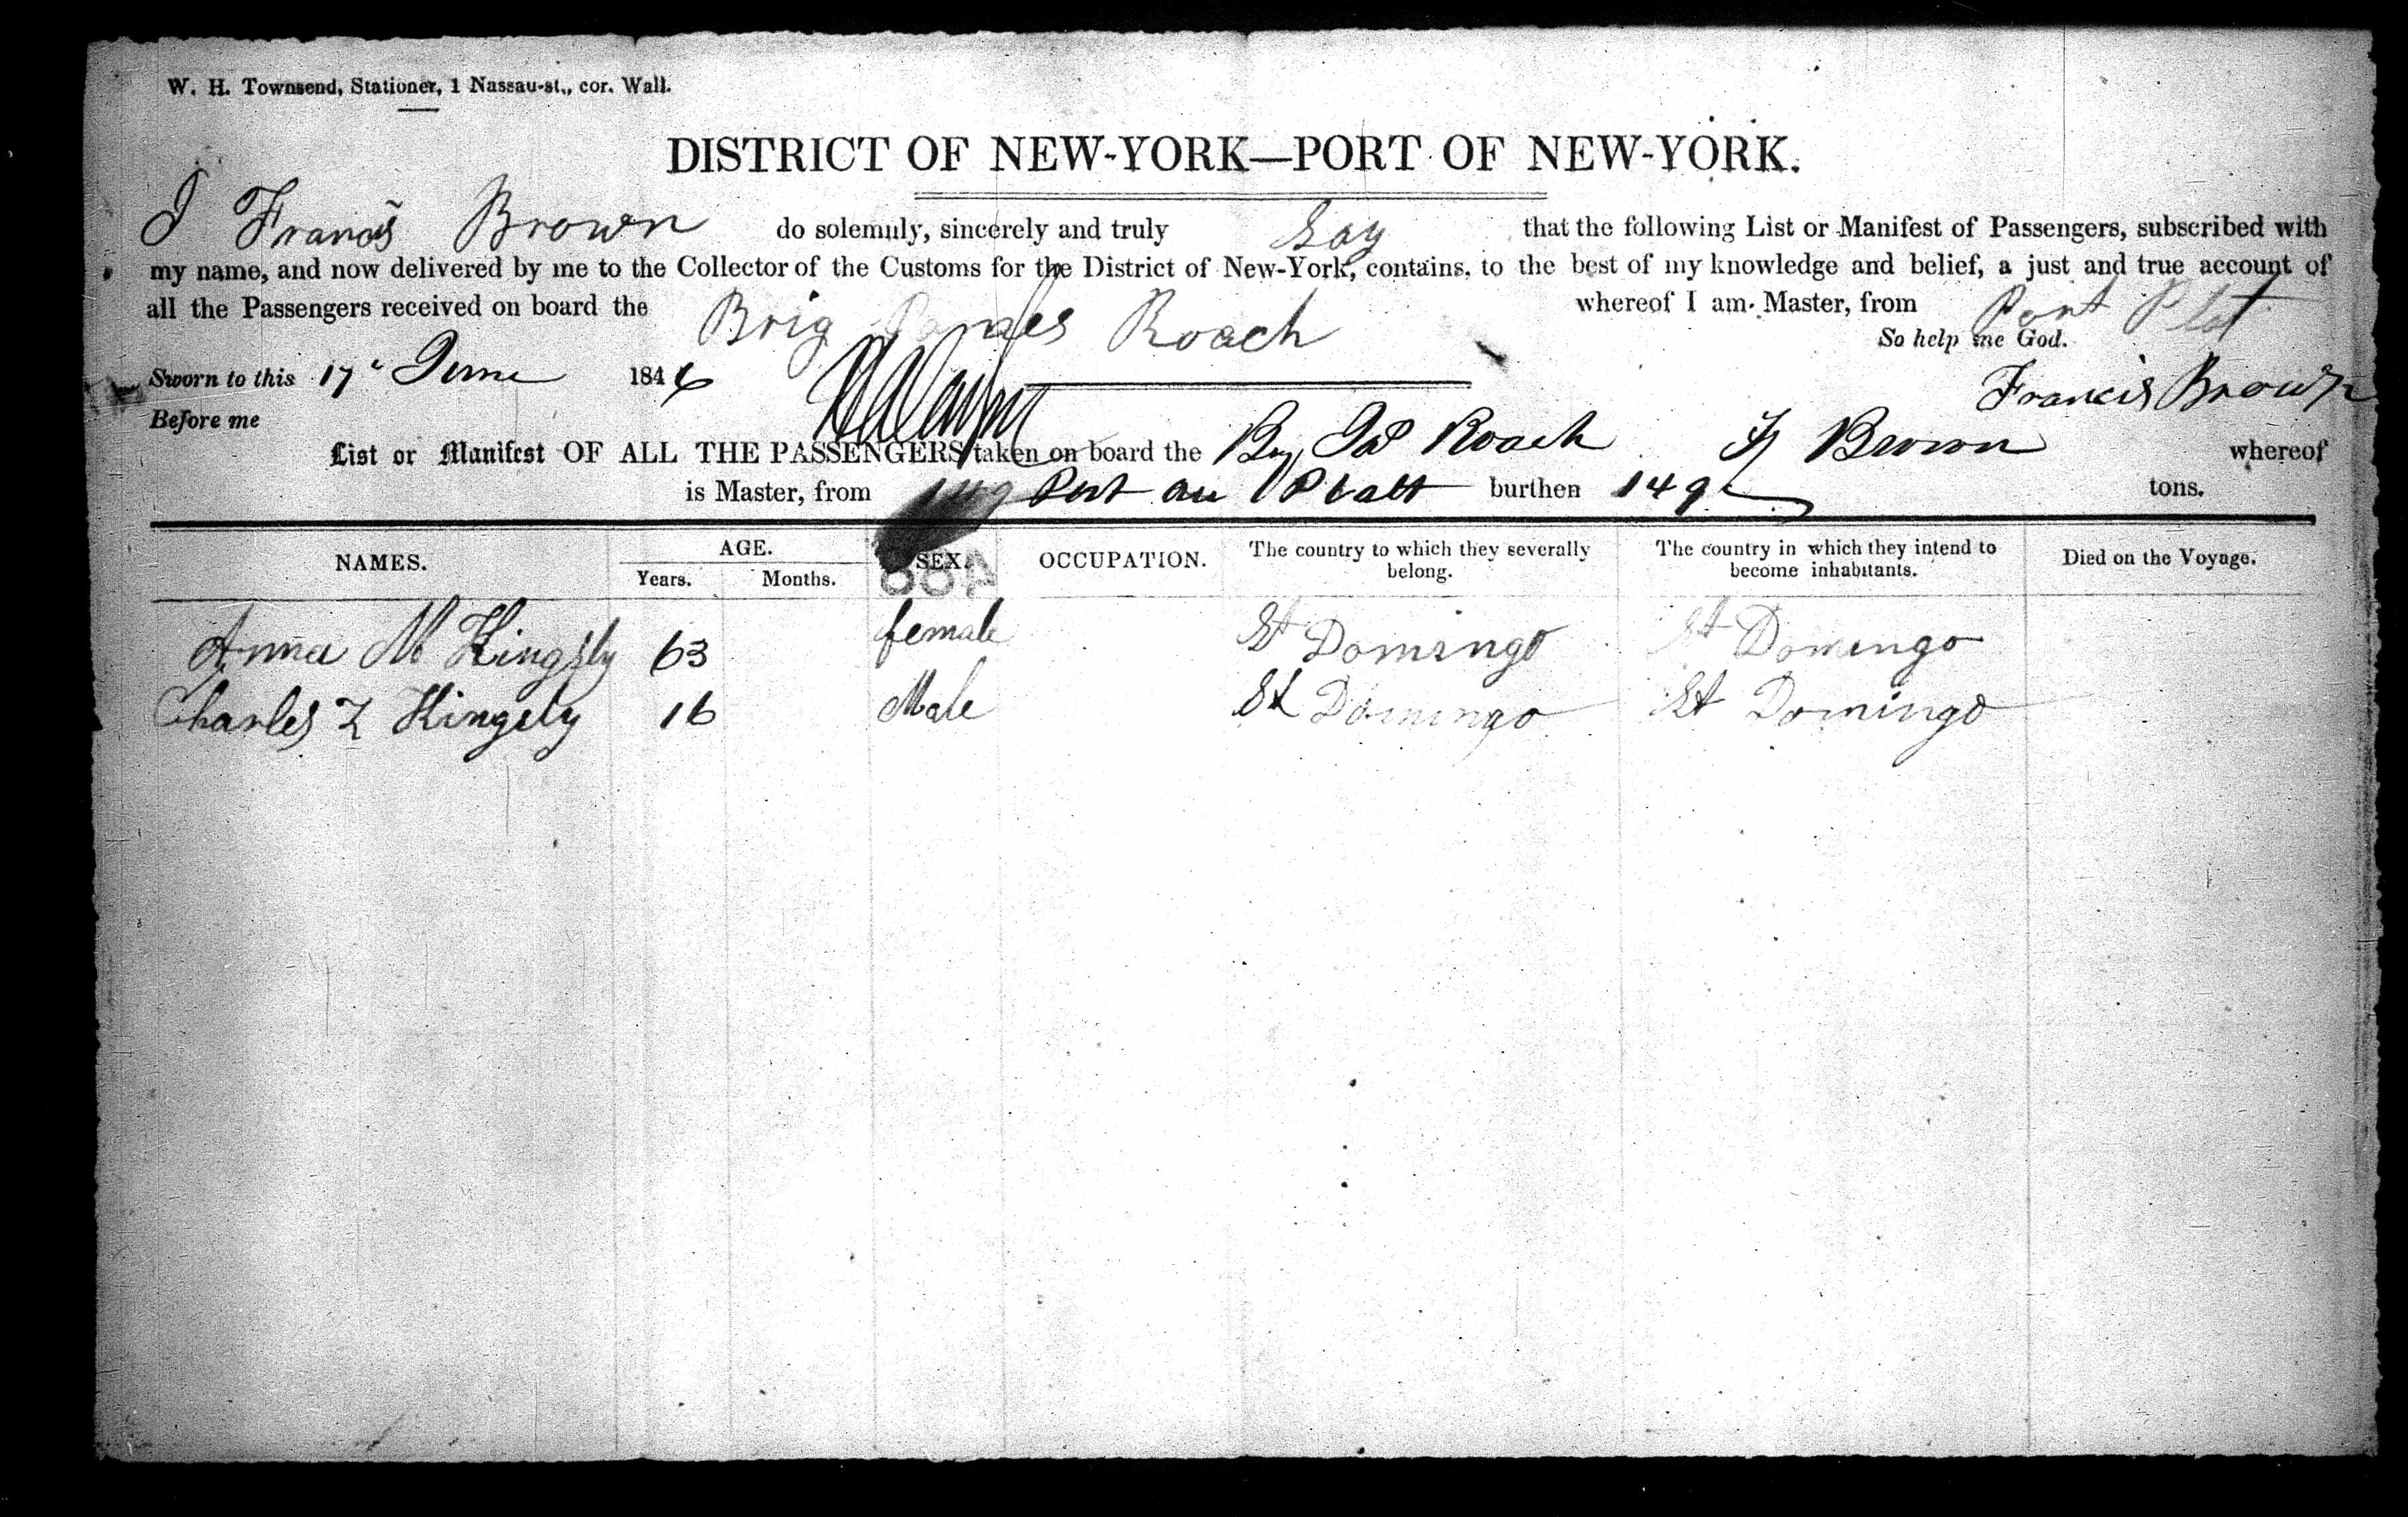 W. H. Townsend, Stationer, 1 Nassau-st., cor. Wall.
DISTRICT OF NEW-YORK—PORT OF NEW-YORK.
I Francis Brown do solemnly, sincerely and truly Say that the following List or Manifest of Passengers, subscribed with
my name, and now delivered by me to the Collector of the Customs for the District of New-York, contains, to the best of my knowledge and belief, a just and true account of
all the Passengers received on board the Brig James Roach whereof I am Master, from Port Plat
So help me God.
Sworn to this 17 June 1846 Francis Brown
Before me
List or Manifest OF ALL THE PASSENGERS taken on board the Brig Jas Roach F Brown whereof
is Master, from Port au Platt burthen 149 tons.
NAMES. AGE. Years. Months. SEX. OCCUPATION. The country to which they severally belong. The country in which they intend to become inhabitants. Died on the Voyage.
Anna M Kingsly 63 female St Domingo St Domingo
Charles Z Kingsly 16 Male St Domingo St Domingo